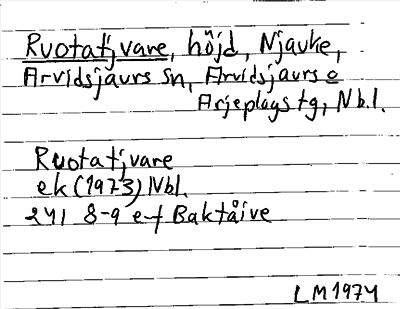 Ruotatjvare, höjd, Njavve,
Arvidsjaurs sn, Arvidsjaurs o
Arjeplogs tg, Nb.l.
Ruotatjvare
ek (1973) Nbl.
24I 8-9 e-f Baktåive
LM 1974